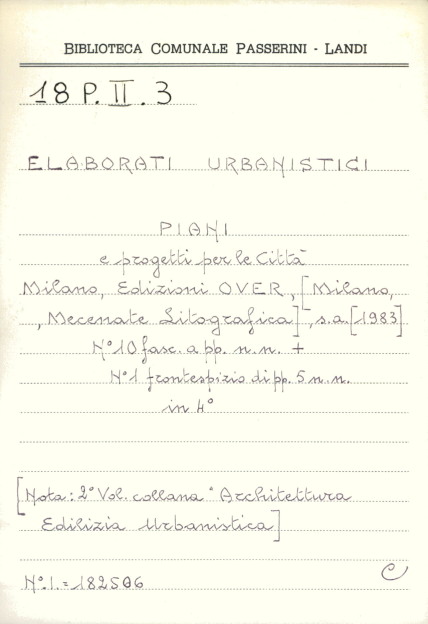 BIBLIOTECA COMUNALE PASSERINI - LANDI
18 P. II. 3
ELABORATI URBANISTICI
PIANI
e progetti per le Città
Milano, Edizioni OVER, [Milano,
, Mecenate Litografica], s.a. [1983]
N° 10 fasc. a pp. n.n. +
N° 1 frontespizio di pp. 5 n.n.
in 4°
[Nota: 2° Vol. collana " Architettura
Edilizia Urbanistica]
N°. I. = 182506
C